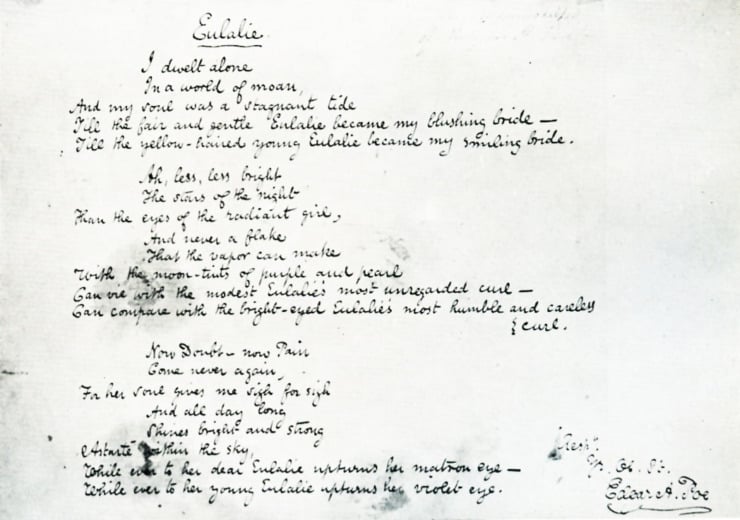 Eulalie.
I dwelt alone
In a world of moan,
And my soul was a stagnant tide
Till the fair and gentle Eulalie became my blushing bride —
Till the yellow-haired young Eulalie became my smiling bride.
Ah, less, less bright
The stars of the night
Than the eyes of the radiant girl,
And never a flake
That the vapor can make
With the moon-tints of purple and pearl
Can vie with the modest Eulalie's most unregarded curl —
Can compare with the bright-eyed Eulalie's most humble and careless
curl.
Now Doubt — now Pain
Come never again,
For her soul gives me sigh for sigh
And all day long
Shines bright and strong
Astarté within the sky,
While ever to her dear Eulalie upturns her matron eye —
While ever to her young Eulalie upturns her violet eye.
Resp.y
Yr. Ob. St.
Edgar A. Poe